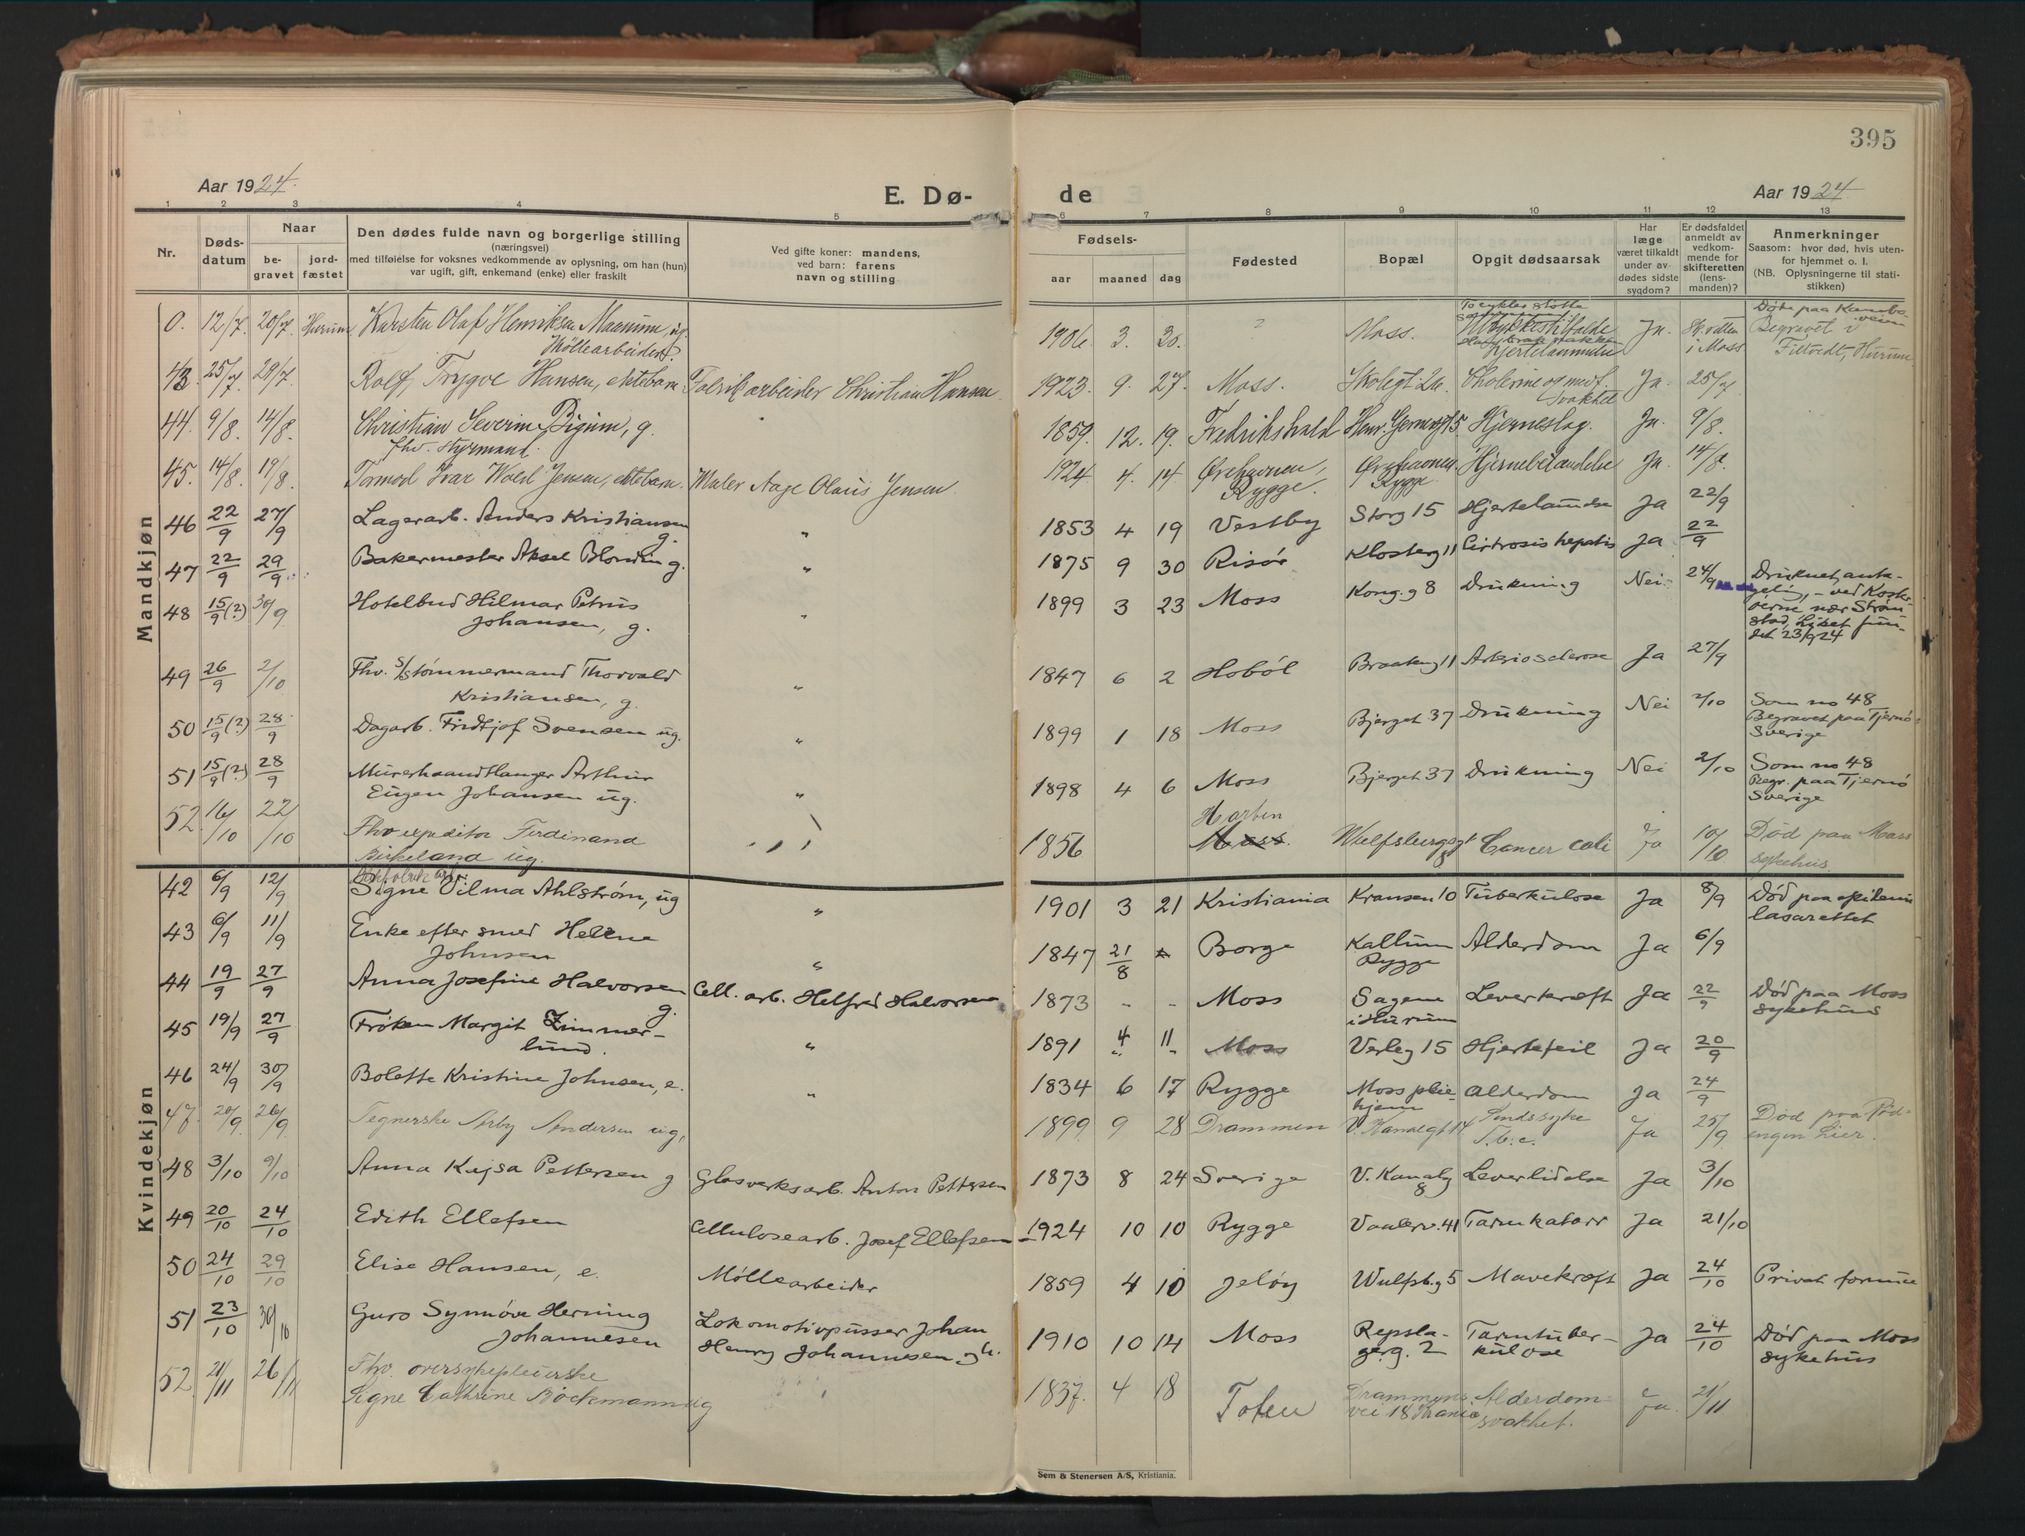 395
Aar 1924.
E. Dø-
de
Aar 1924
1 2 3 4 5 6 7 8 9 10 11 12 13
Nr.
Døds-
datum
Naar
be-
gravet
jord-
fæstet
Den dødes fulde navn og borgerlige stilling
(næringsvei)
med tilføielse for voksnes vedkommende av oplysning, om han (hun)
var ugift, gift, enkemand (enke) eller fraskilt
Ved gifte koner: mandens,
ved barn: farens
navn og stilling
Fødsels-
aar maaned dag
Fødested
Bopæl
Opgit dødsaarsak
Har
læge
været tilkaldt
under av-
dødes sidste
sygdom?
Er dødsfaldet
anmeldt av
vedkom-
mende for
skifteretten
(lens-
manden)?
Anmerkninger
Saasom: hvor død, hvis uten-
for hjemmet o. l.
(NB. Oplysningerne til stati-
stikken)
Mandkjøn
0. 12/7. 20/7. Hurum Karsten Olaf Henriksen Maerum, ug.
Møllearbeider
1906 3. 20. ? Moss. Ja. Skiften
i Moss
Begravet i
Filtvedt, Hurum
43. 25/7. 29/7. Rolf Trygve Hansen, ektebarn Fabrikarbeider Christian Hansen 1923. 9. 27. Moss. Skolegt 26. Cholerine og medf.
Svakhet Ja. 25/7
44. 9/8. 14/8. Christian Severin Bigum, g.
fhv. styrmand. 1859. 12. 19. Fredrikshald Henr. Gernersgt 15. Hjerneslag. Ja. 9/8.
45. 14/8. 19/8. Tormod Ivar Wold Jensen, ektebarn. Maler Aage Olaus Jensen. 1924 4. 14 Ørehavnen,
Rygge. Ørehavnen
Rygge Hjernebetændelse Ja. 14/8.
46 22/9 27/9 Lagerarb. Anders Kristiansen
g. " 1853 4 19 Vestby Storg 15 Hjertelamelse Ja 22/9
47 22/9 29/9 Bakermester Aksel Blondin g. " 1875 9 30 Risør Klosterg 11 Cirrosis hepatis Ja 22/9
48 15/9(?) 30/9 Hotelbud Hilmar Petrus
Johansen, g. " 1899 3 23 Moss Kong. g 8 Drukning Nei 24/9 Druknet, anta-
gelig, - ved Koster-
øerne nær Strøm-
stad, Liket fun-
det 23/9 24
49 26/9 2/10 Fhv. s/stømmermand Thorvald
Kristiansen, g. " 1847 6 2 Hobøl Braateng 11 Arteriosclerose Ja 27/9
50 15/9(?) 28/9 Dagarb. Fridtjof Svensen ug. " 1899 1 18 Moss Bjerget 37 Drukning Nei 2/10 Som no 48
Begravet paa Tjernø
Sverige
51 15/9(?) 28/9 Murerhaandtlanger Arthur
Eugen Johansen ug. " 1898 4 6 Moss Bjerget 37 Drukning Nei 2/10 Som no 48
Begr. paa Tjernø
Sverige
52. 16/10 22/10 Fhv. expeditør Ferdinand
Birkeland ug. " 1856 Moss. Wulfsbergsgt
8 Cancer coli Ja 18/10 Død paa Moss
sykehus.
Kvindekjøn
42 6/9 12/9 Signe Vilma Ahlstrøm, ug " 1901 3 21 Kristiania Kransen 10 Tuberkulose Ja 8/9 Død paa epidemi
lasarettet
43 6/9 11/9 Enke efter smed Helene
Johnsen " 1847 21/8 Borge Kallum
Rygge Alderdom Ja 6/9
44 19/9 27/9 Anna Josefine Halvorsen
g. Cell. arb. Helfred Halvorsen 1873 - - Moss Sagene
i Hurum Leverkræft Ja 22/9 Død paa Moss
sykehus
45 19/9 27/9 Frøken Margit Zimmer-
lund. " 1891 4 11 Moss Verleg 15 Hjertefeil Ja 20/9
46 24/9 30/9 Bolette Kristine Johnsen, e. " 1834 6 17 Rygge Moss pleie-
hjem Alderdom Ja 24/9
47. 20/9 26/9 Tegnerske Arby Andersen ug, 1899 9 28 Drammen V. Kanalgt 14 Sindssyke
T.b.c. Ja 25/9 Død paa Rød-
engen Lier.
48 3/10 9/10 Anna Kajsa Pettersen g Glasverksarb. Anton Pettersen 1873 8 24 Sverige V. Kanalg
8 Leverlidelse Ja 3/10
49 20/10 24/10 Edith Ellefsen Cellulosearb. Josef Ellefsen 1924 10 10 Rygge Vaalerv. 41 Tarmkatarr Ja 21/10
50 24/10 29/10 Elise Hansen, e. Møllearbeider 1859 4 10 Jeløy Wulfsb.g 5 Mavekræft Ja 24/10 Privat formue
51 23/10 30/10 Guro Synnøve Herning
Johannesen Lokomotivpusser Johan
Henry Johannesen og h. 1910 10 14 Moss Repsla-
gerg. 2 Tarmtuber-
kulose Ja 24/10 Død paa Moss
sykehus
52 21/11 26/11 Fhv. oversykepleierske
Signe Cathrine Bøckmann ug 1837. 4 18 Toten Drammens-
vei 18 Krania Alderdom-
svakhet. Ja. 21/11
Sem & Stenersen A/S, Kristiania.